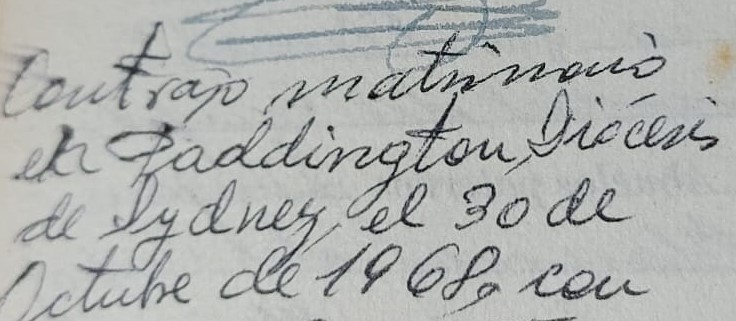 Contrajo matrimonio
en Paddington, Diócesis
de Sydney, el 30 de
Octubre de 1968, con